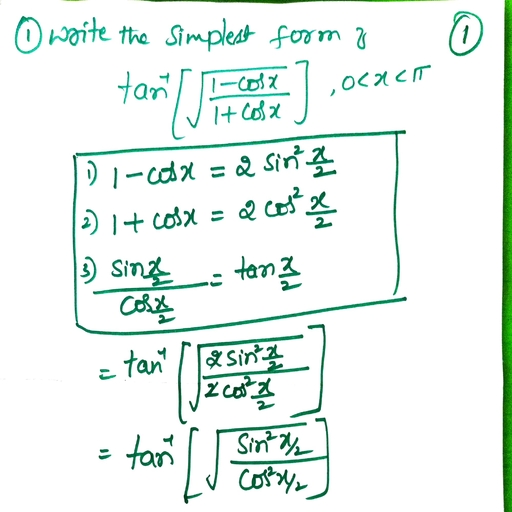 ① Write the simplest form of ①
tan⁻¹[√((1-cosx)/(1+cosx))], 0<x<π
1) 1-cosx = 2 sin² x/2
2) 1+cosx = 2 cos² x/2
3) (sin x/2)/(cos x/2) = tan x/2
= tan⁻¹[√((2 sin² x/2)/(2 cos² x/2))]
= tan⁻¹[√((sin² x/2)/(cos² x/2))]